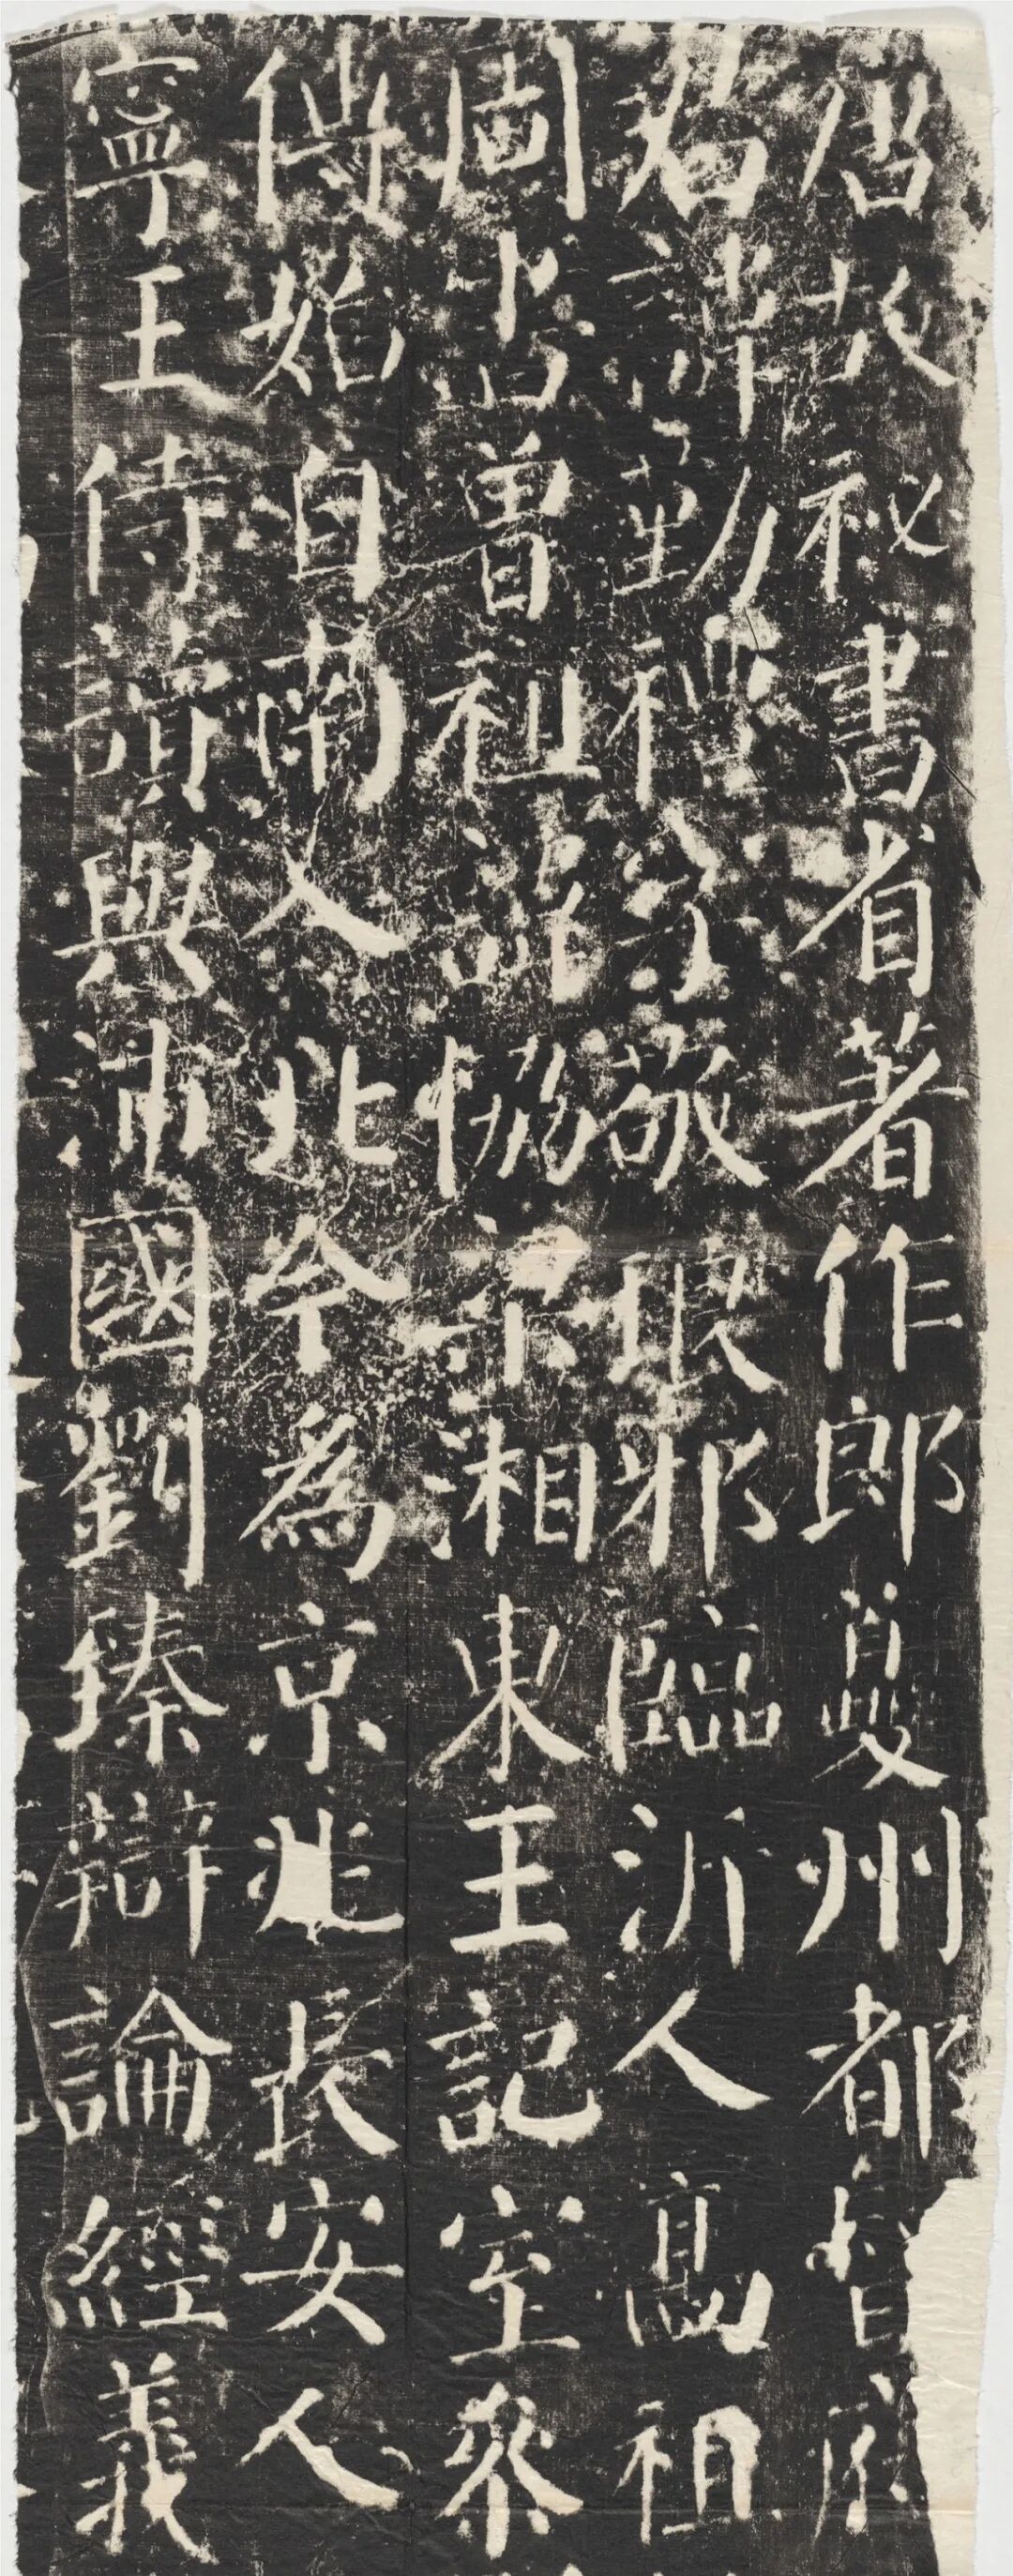 唐故祕書省著作郎夔州都督府
君諱勤禮字敬琅邪臨沂人高祖
周書曾祖諱協梁湘東王記室參
傳始自南入北今為京兆長安人
寧王侍讀與沛國劉臻辯論經義